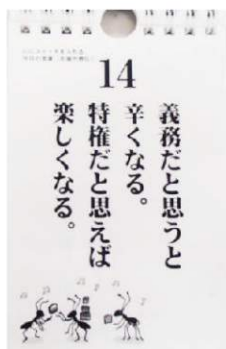 14
義務だと思うと
辛くなる。
特権だと思えば
楽しくなる。